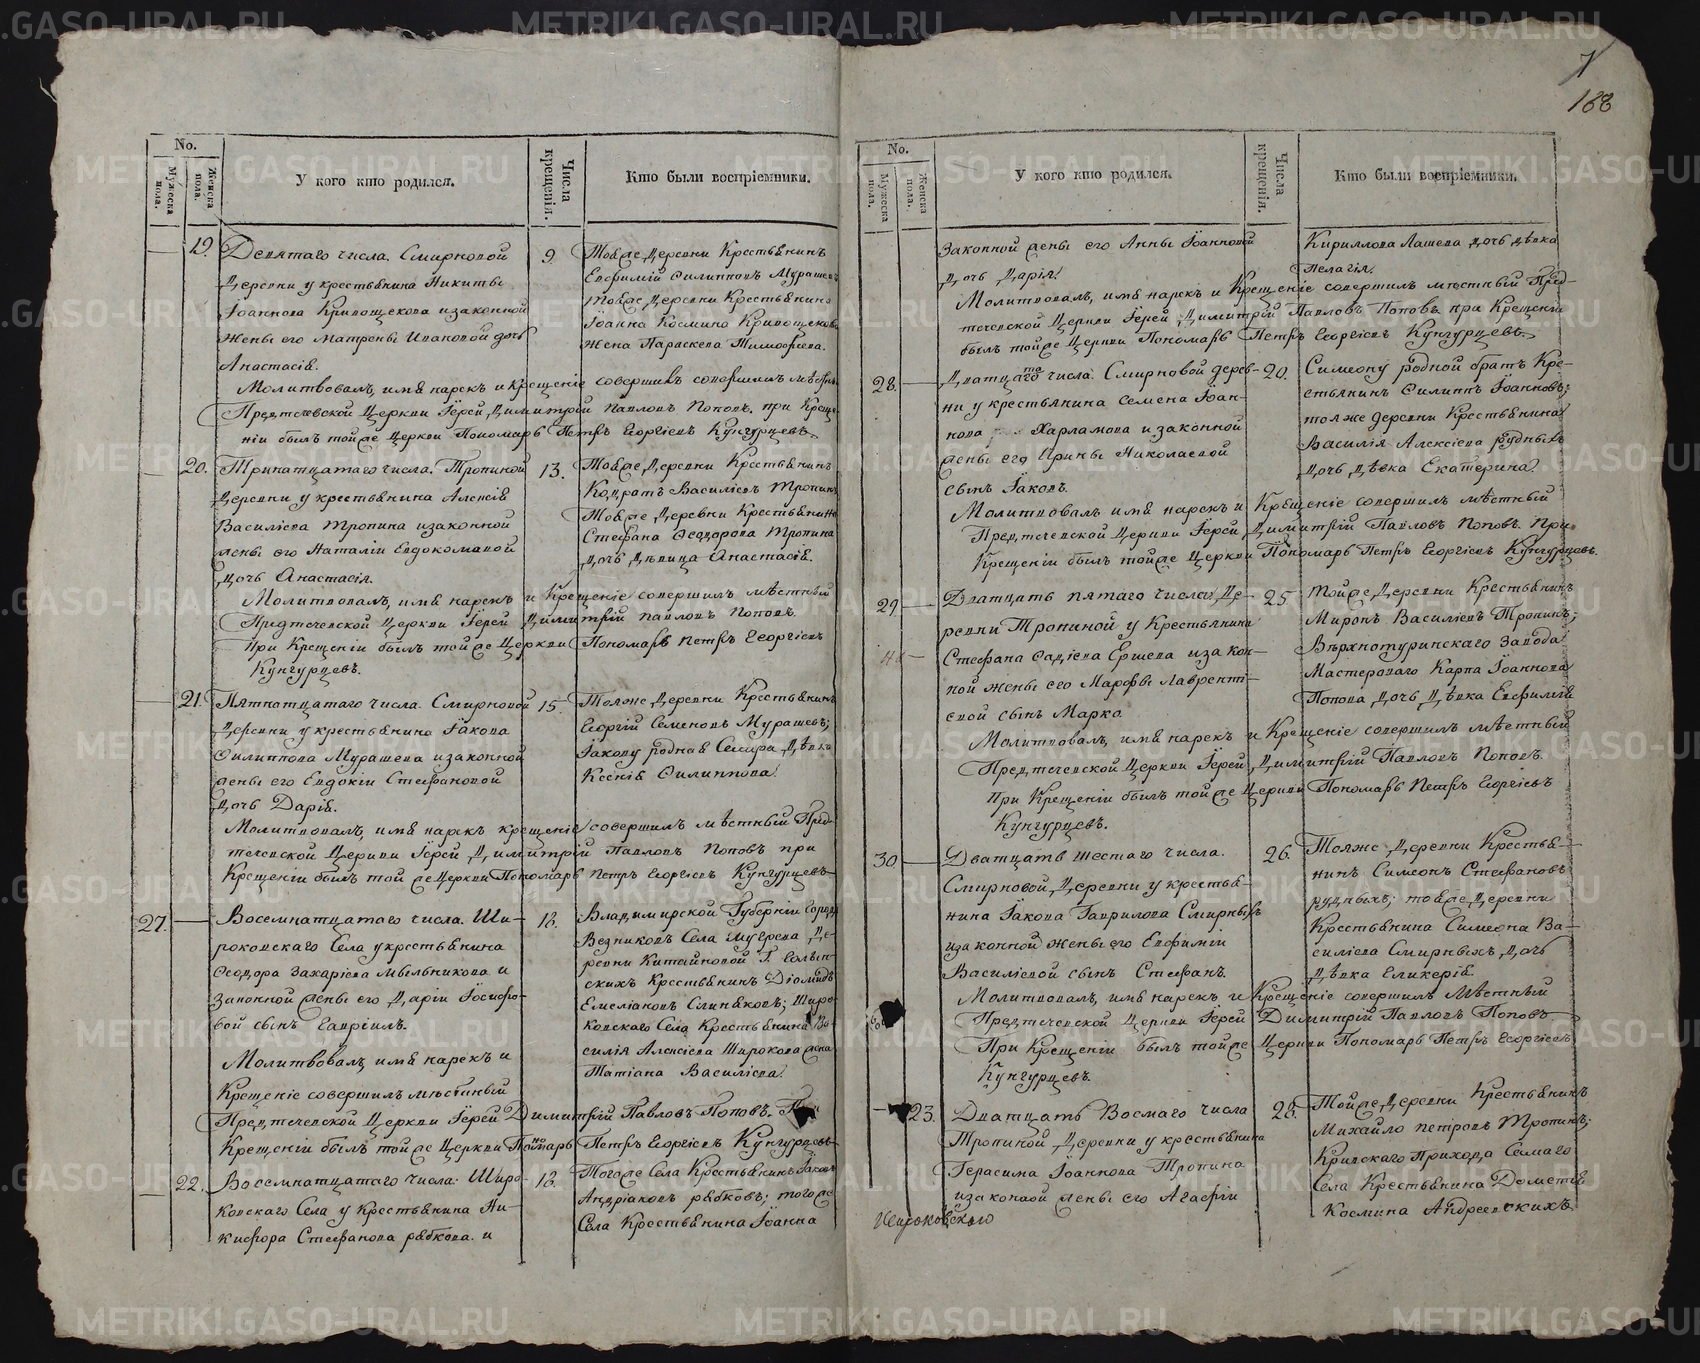 METRIKI.GASO-URAL.RU
7
188
No.
Мужеска пола.
Женска пола.
У кого кто родился.
Числа крещенія.
Кто были воспріемники.
19.
Девятаго числа. Смирновой
деревни у крестьянина Никиты
Іоаннова Кривощекова и законной
жены его Матроны Ивановой дочь
Анастасія.
9
Тойже деревни крестьянинъ
Евфимій Филипповъ Мурашевъ
тойже деревни крестьянина
Іоанна Космина Кривощекова
жена Параскева Тимофеева.
Молитвовалъ, имя нарекъ и крещеніе совершивъ совершилъ мѣстный
Предтечевской Церкви Іерей Димитрій Павловъ Поповъ. при Креще-
ніи былъ тойже Церкви Пономарь Петръ Георгіевъ Кунгурцевъ.
20.
Тринатцатаго числа. Тропиной
деревни у крестьянина Алексія
Василіева Тропина и законной
жены его Наталіи Евдокомовой
дочь Анастасія.
13.
Тойже деревни Крестьянинъ
Кодратъ Василіевъ Тропинъ
Тойже деревни Крестьянина
Стефана Феодорова Тропина
дочь дѣвица Анастасія.
Молитвовалъ, имя нарекъ и Крещеніе совершилъ мѣстный
Предтечевской Церкви Іерей Димитрій Павловъ Поповъ.
При Крещеніи былъ тойже Церкви Пономарь Петръ Георгіевъ
Кунгурцевъ.
21.
Пятнатцатаго числа. Смирновой
деревни у крестьянина Іакова
Филиппова Мурашева и законной
жены его Евдокіи Стефановой
дочь Дарія.
15
Тояже деревни Крестьянинъ
Георгій Семеновъ Мурашевъ;
Іакову родная Сестра дѣвка
Ксенія Филиппова.
Молитвовалъ, имя нарекъ крещеніе совершилъ мѣстный Пред-
течевской Церкви Іерей Димитрій Павловъ Поповъ при
Крещеніи былъ той же Церкви Пономарь Петръ Георгіевъ Кунгурцевъ
27.
Восемнатцатаго числа. Ши-
роковскаго Села у крестьянина
Феодора Захаріева Мыльникова и
законной жены его Даріи Іосифо-
вой сынъ Гавріилъ.
18.
Владимирской Губерніи Города
Вязниковъ Села Мугрева де-
ревни Китайновой
скихъ Крестьянинъ Діомидъ
Емеліановъ Слиняковъ; Широ-
ковскаго Села Крестьянина Ва-
силія Алексіева Широкова жена
Татіана Василіева.
Молитвовалъ имя нарекъ и
Крещеніе совершилъ мѣстный
Предтечевской Церкви Іерей Димитрій Павловъ Поповъ. При
Крещеніи былъ тойже Церкви Пономарь Петръ Георгіевъ Кунгурцевъ
22.
Восемнатцатаго числа. Широ-
ковскаго Села у Крестьянина Ни-
кифора Стефанова рябкова и
18.
Тогоже Села Крестьянинъ Іаковъ
Андріановъ рябковъ; тогоже
Села Крестьянина Іоанна
No.
Мужеска пола.
Женска пола.
У кого кто родился.
Числа крещенія.
Кто были воспріемники.
Законной жены его Анны Іоанновой
дочь Дарія.
Кириллова Лашева дочь дѣвка
Пелагія.
Молитвовалъ, имя нарекъ и Крещеніе совершилъ мѣстный Пред-
течевской Церкви Іерей Димитрій Павловъ Поповъ при Крещеніи
былъ тойже Церкви Пономарь Петръ Георгіевъ Кунгурцевъ.
28.
Дватцатаго числа. Смирновой дерев-
ни у крестьянина Семена Іоан-
нова Харламова и законной
жены его Ирины Николаевой
сынъ Іаковъ.
20.
Симеону родной братъ Кре-
стьянинъ Филиппъ Іоанновъ;
тояже деревни Крестьянина
Василія Алексіева рудныхъ
дочь дѣвка Екатерина.
Молитвовалъ имя нарекъ и Крещеніе совершилъ мѣстный
Предтечевской Церкви Іерей Димитрій Павловъ Поповъ. При
Крещеніи былъ тойже Церкви Пономарь Петръ Георгіевъ Кунгурцевъ.
29
Дватцать пятаго числа, де-
ревни Тропиной у Крестьянина
Стефана Фадіева Ершева и закон-
ной жены его Марфы Лавренті-
евой сынъ Марко.
25
Тойже деревни Крестьянинъ
Миронъ Василіевъ Тропинъ;
Вѣрхнотуринскаго Завода
Мастероваго Карпа Іоаннова
Попова дочь дѣвка Евфимія
Молитвовалъ, имя нарекъ и Крещеніе совершилъ мѣстный
Предтечевской Церкви Іерей Димитрій Павловъ Поповъ.
При Крещеніи былъ тойже Церкви Пономарь Петръ Георгіевъ
Кунгурцевъ.
30
Дватцать шестаго числа.
Смирновой деревни у крестья-
нина Іакова Гаврилова Смирныхъ
и законной жены его Евфиміи
Василіевой сынъ Стефанъ.
26.
Тояже деревни Крестья-
нинъ Симеонъ Стефановъ
рудныхъ; тойже деревни
Крестьянина Симеона Ва-
силіева Смирныхъ дочь
дѣвка Гликерія.
Молитвовалъ, имя нарекъ и Крещеніе совершилъ Мѣстный
Предтечевской Церкви Іерей Димитрій Павловъ Поповъ
При Крещеніи былъ тойже Церкви Пономарь Петръ Георгіевъ
Кунгурцевъ.
23.
Дватцать Восмаго числа
Тропиной деревни у крестьянина
Герасима Іоаннова Тропина
и законной жены его Агафіи
28.
Тойже деревни Крестьянинъ
Михайло Петровъ Тропинъ;
Кривскаго Прихода Самаго
Села Крестьянина Дометія
Космина Андреевскихъ
Широковского